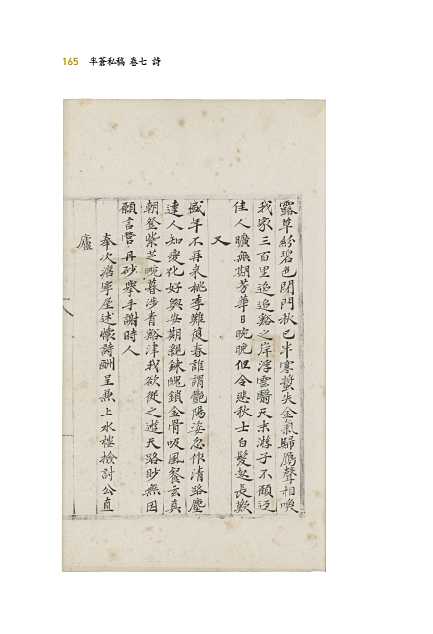 165 半蒼私稿 卷七 詩
露草紛碧色閉門秋已半寒螿失金氣歸鴈聲相喚
我家三百里逈逈谿之岸浮雲翳天末游子不顧返
佳人曠無期芳華日晼晼但令悲秋士白髮起長歎
又
盛年不再來桃李難復春誰謂艶陽姿忽作清路塵
達人知變化好與安期親鍊魄鎖金骨吸風餐玄真
朝登紫芝畹暮涉青谿津我欲從之遊天路眇無因
願言營丹砂擧手謝時人
奉次居寧屋述懷詩酬呈兼上水樓檢討公直
廬